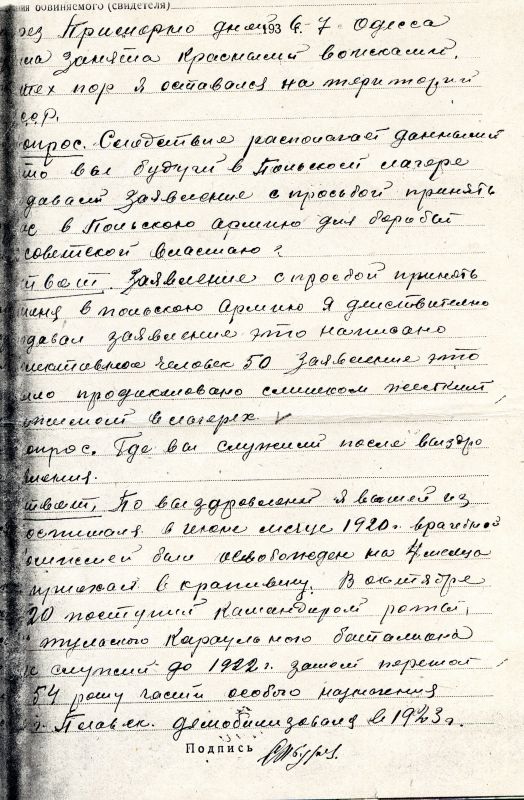 ния обвиняемого (свидетеля)
рез Примерно дней 6-7 Одесса
193 г.
ла занята красными войсками,
тех пор я оставался на територии
сср.
опрос. Следствие располагает данными
то вы будучи в Польском лагере
давали Заявление с просьбой принять
ас в Польскою Армию для борьбы
советской властью?
твет. Заявление с просбой принять
меня в польскою Армию я действительно
давал заявление это написано
лективное человек 50 Заявление это
ло продиктовано слишком жесткий
жимом в лагерех
опрос. Где вы служили после выздро
ления.
твет. По выздровлении я вышел из
оспиталя в июне месяце 1920 г. врачебной
омиссией был освобожден на 4 месяца
приехал в крапивну. В октябре
20 поступил Камандиром роты,
тульского Караульного баталиона
служил до 1922 г. затем перешол
54 роту части особого назначения
г. Плавск. демобилизовался в 1923 г.
Подпись